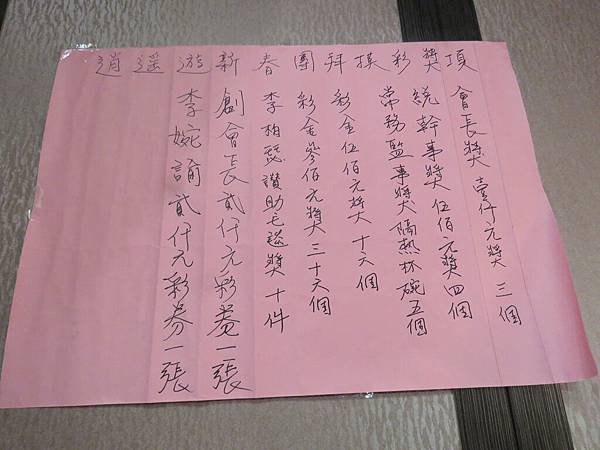 逍遥遊新春團拜摸彩獎項
會長獎 壹仟元獎 三個
統幹事獎 伍佰元獎四個
常務監事獎 隔熱杯碗五個
彩金伍佰元獎 十六個
彩金參佰元獎 三十六個
李柏瑟讚助毛毯獎 十件
創會長貳仟元彩卷一張
李婉諭貳仟元彩券一張